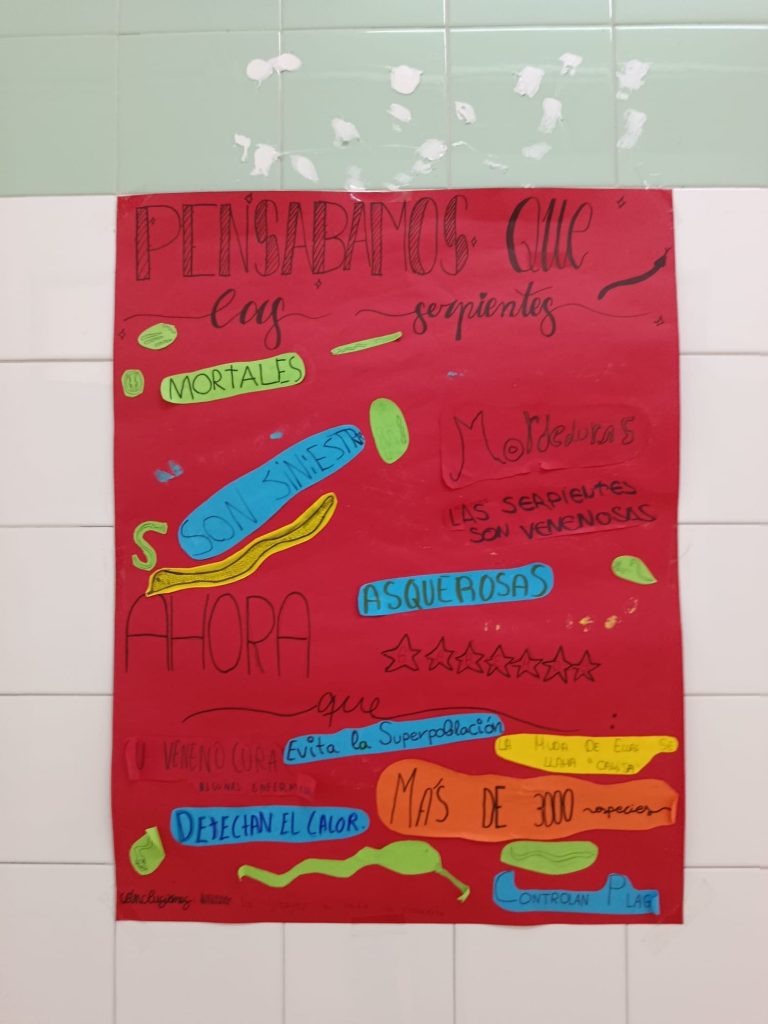 PENSABAMOS QUE
las serpientes
MORTALES
Mordeduras
SON SINIESTR
LAS SERPIENTES
SON VENENOSAS
ASQUEROSAS
AHORA
que :
Evita la Superpoblación
U VENENO CURA
ALGUNAS ENFERM
LA MUDA DE ELLAS SE
LLAMA "CAMISA"
MAS DE 3000 especies
DETECTAN EL CALOR.
CONTROLAN PLAG
conclusiones